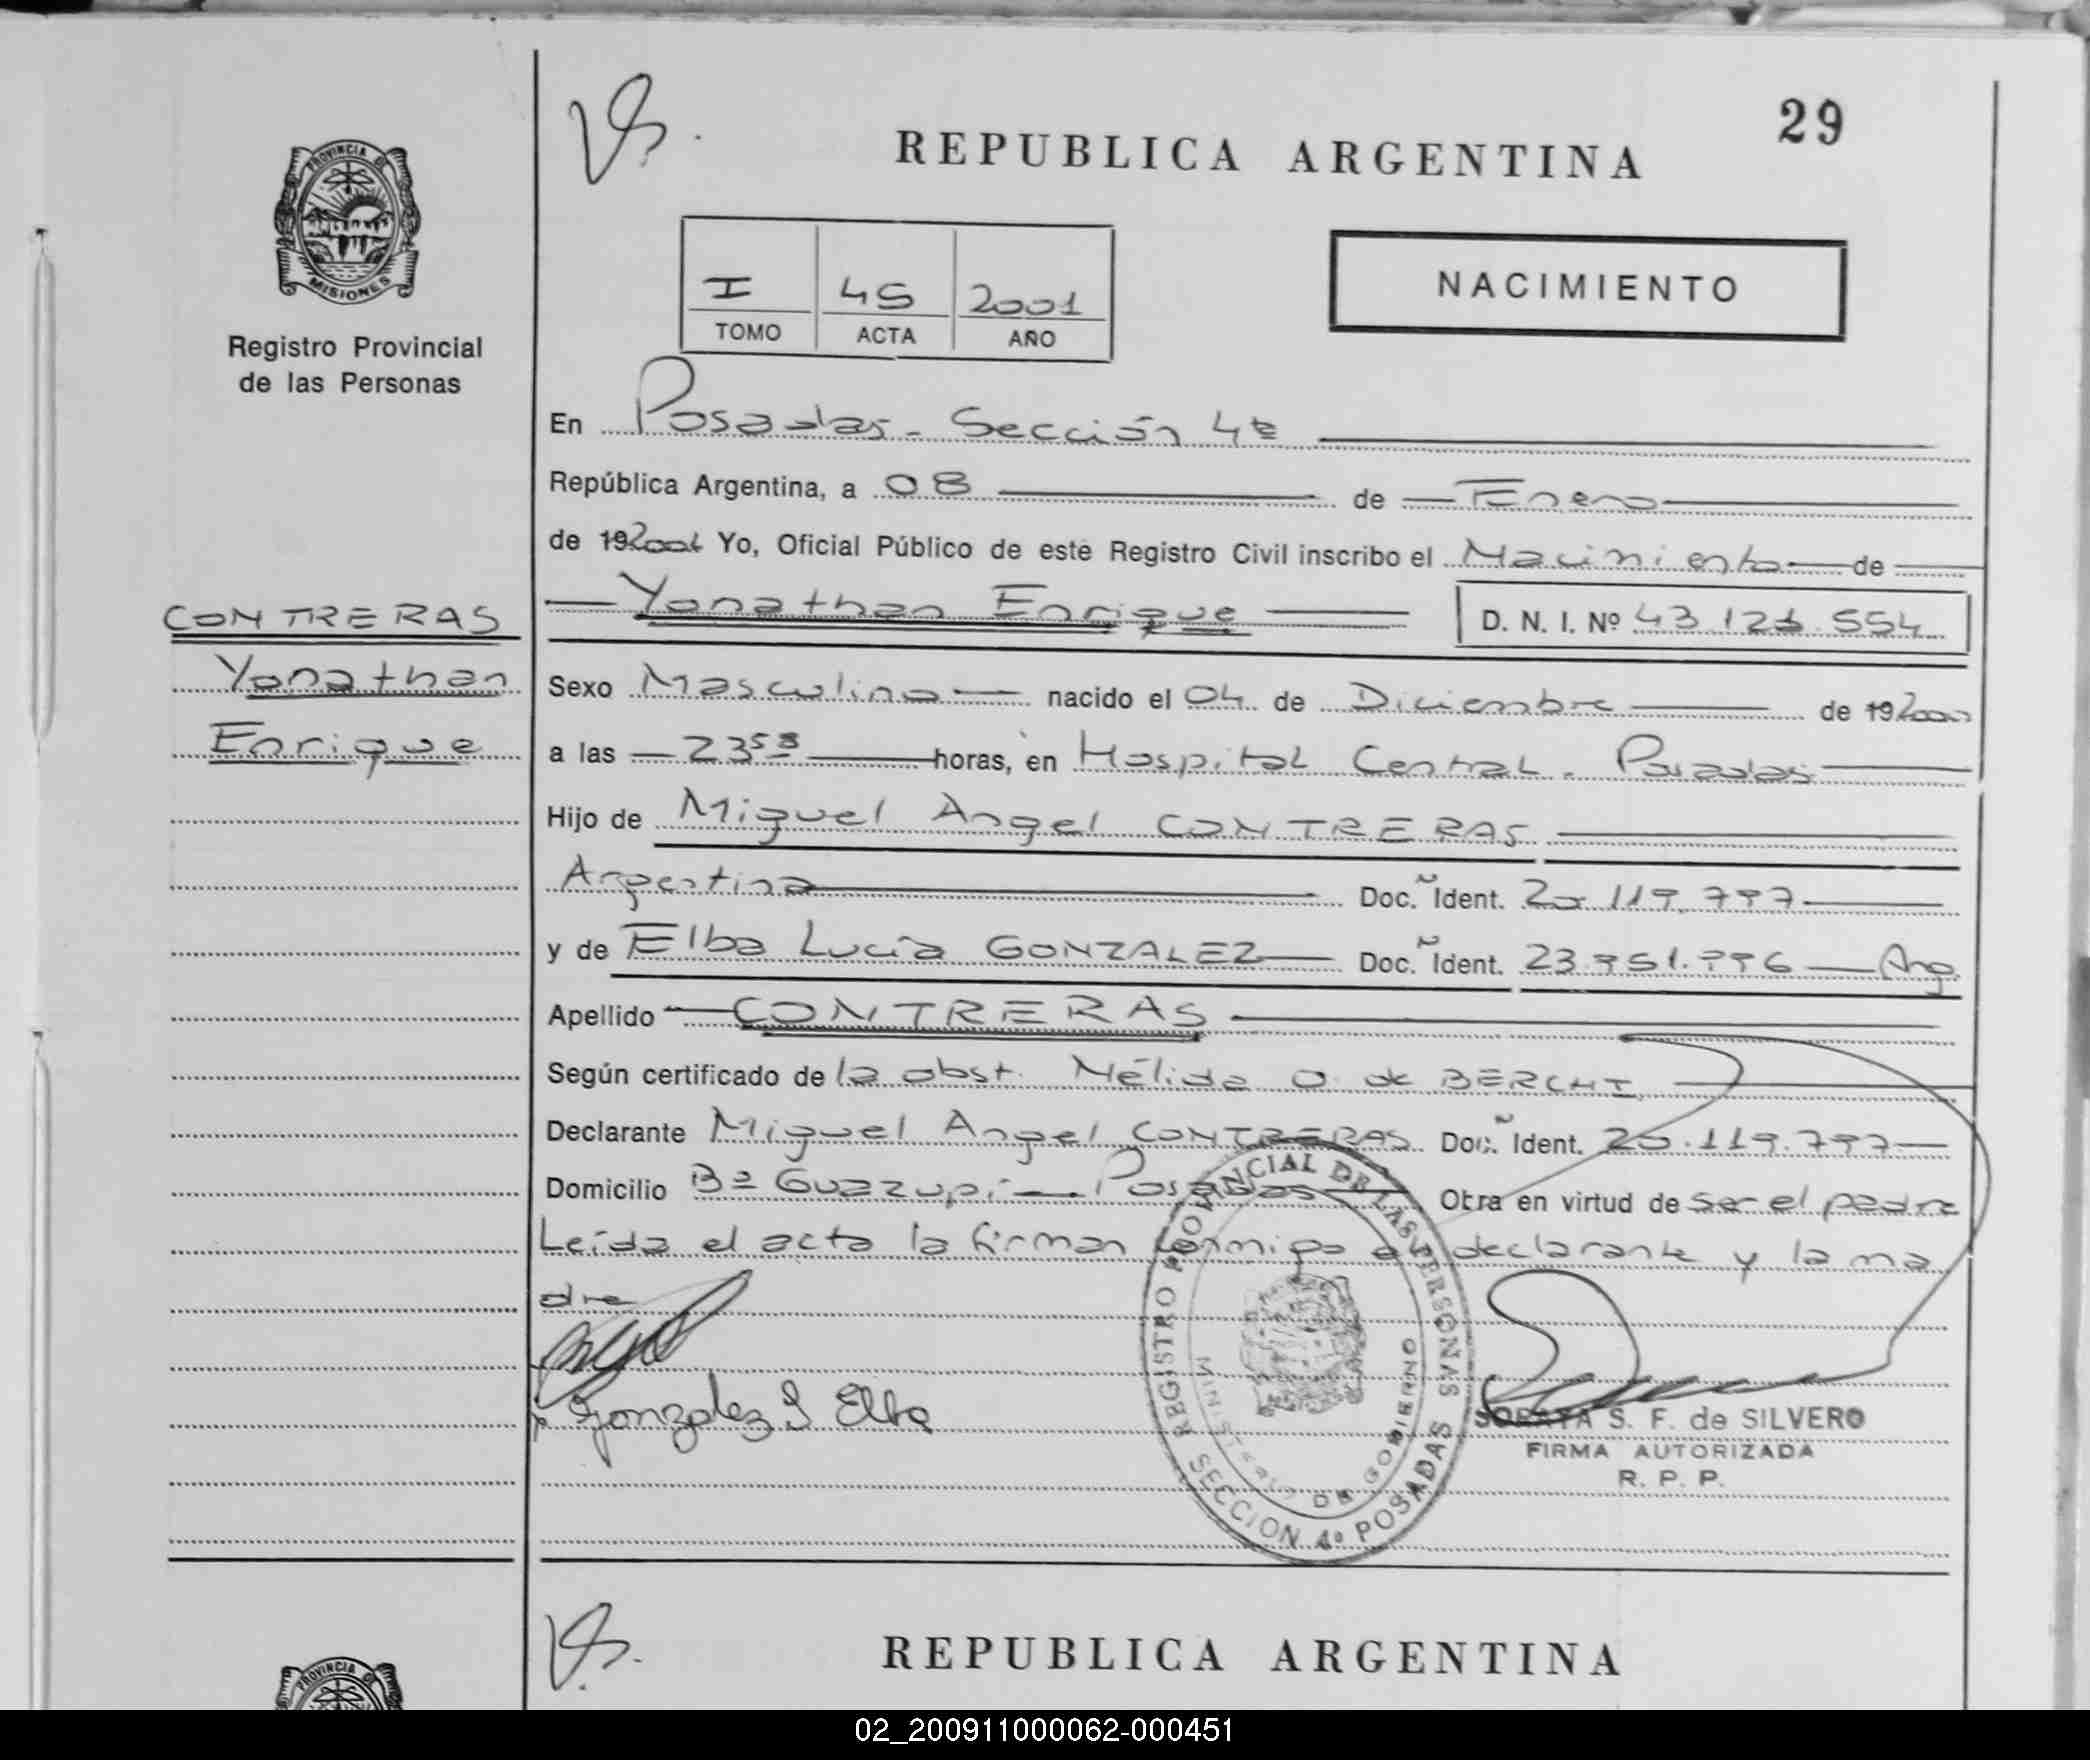 29
REPUBLICA ARGENTINA
PROVINCIA DE
MISIONES
Registro Provincial
de las Personas
I 45 2001
TOMO ACTA AÑO
NACIMIENTO
En Posadas - Sección 4ª
República Argentina, a 08 de Enero
de 192001 Yo, Oficial Público de este Registro Civil inscribo el Nacimiento de
CONTRERAS
Yonathan Enrique D. N. I. Nº 43.121.554
Yonathan
Enrique
Sexo Masculino nacido el 04 de Diciembre de 192000
a las 23 58 horas, en Hospital Central. Posadas
Hijo de Miguel Angel CONTRERAS
Argentina Doc. Ident. 20.119.797
y de Elba Lucía GONZALEZ Doc. Ident. 23.951.996 Arg.
Apellido CONTRERAS
Según certificado de la obst. Nélida O. de BERCHI
Declarante Miguel Angel CONTRERAS Doc. Ident. 20.119.797
Domicilio Bº Guazupi - Posadas Otra en virtud de ser el padre
Leída el acta la firman conmigo el declarante y la ma
dre
Gonzalez L Elba
REGISTRO PROVINCIAL DE LAS PERSONAS
MINISTERIO DE GOBIERNO
SECCION 4º POSADAS
SORAYA S. F. de SILVERO
FIRMA AUTORIZADA
R. P. P.
REPUBLICA ARGENTINA
PROVINCIA DE
02_200911000062-000451